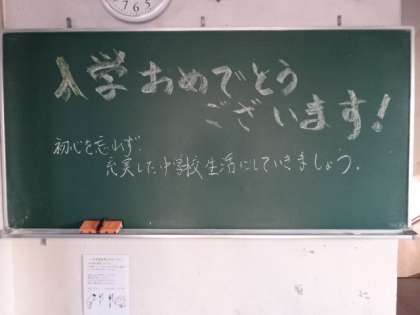 入学おめでとう
ございます!
初心を忘れず、
充実した中学校生活にしていきましょう。
765